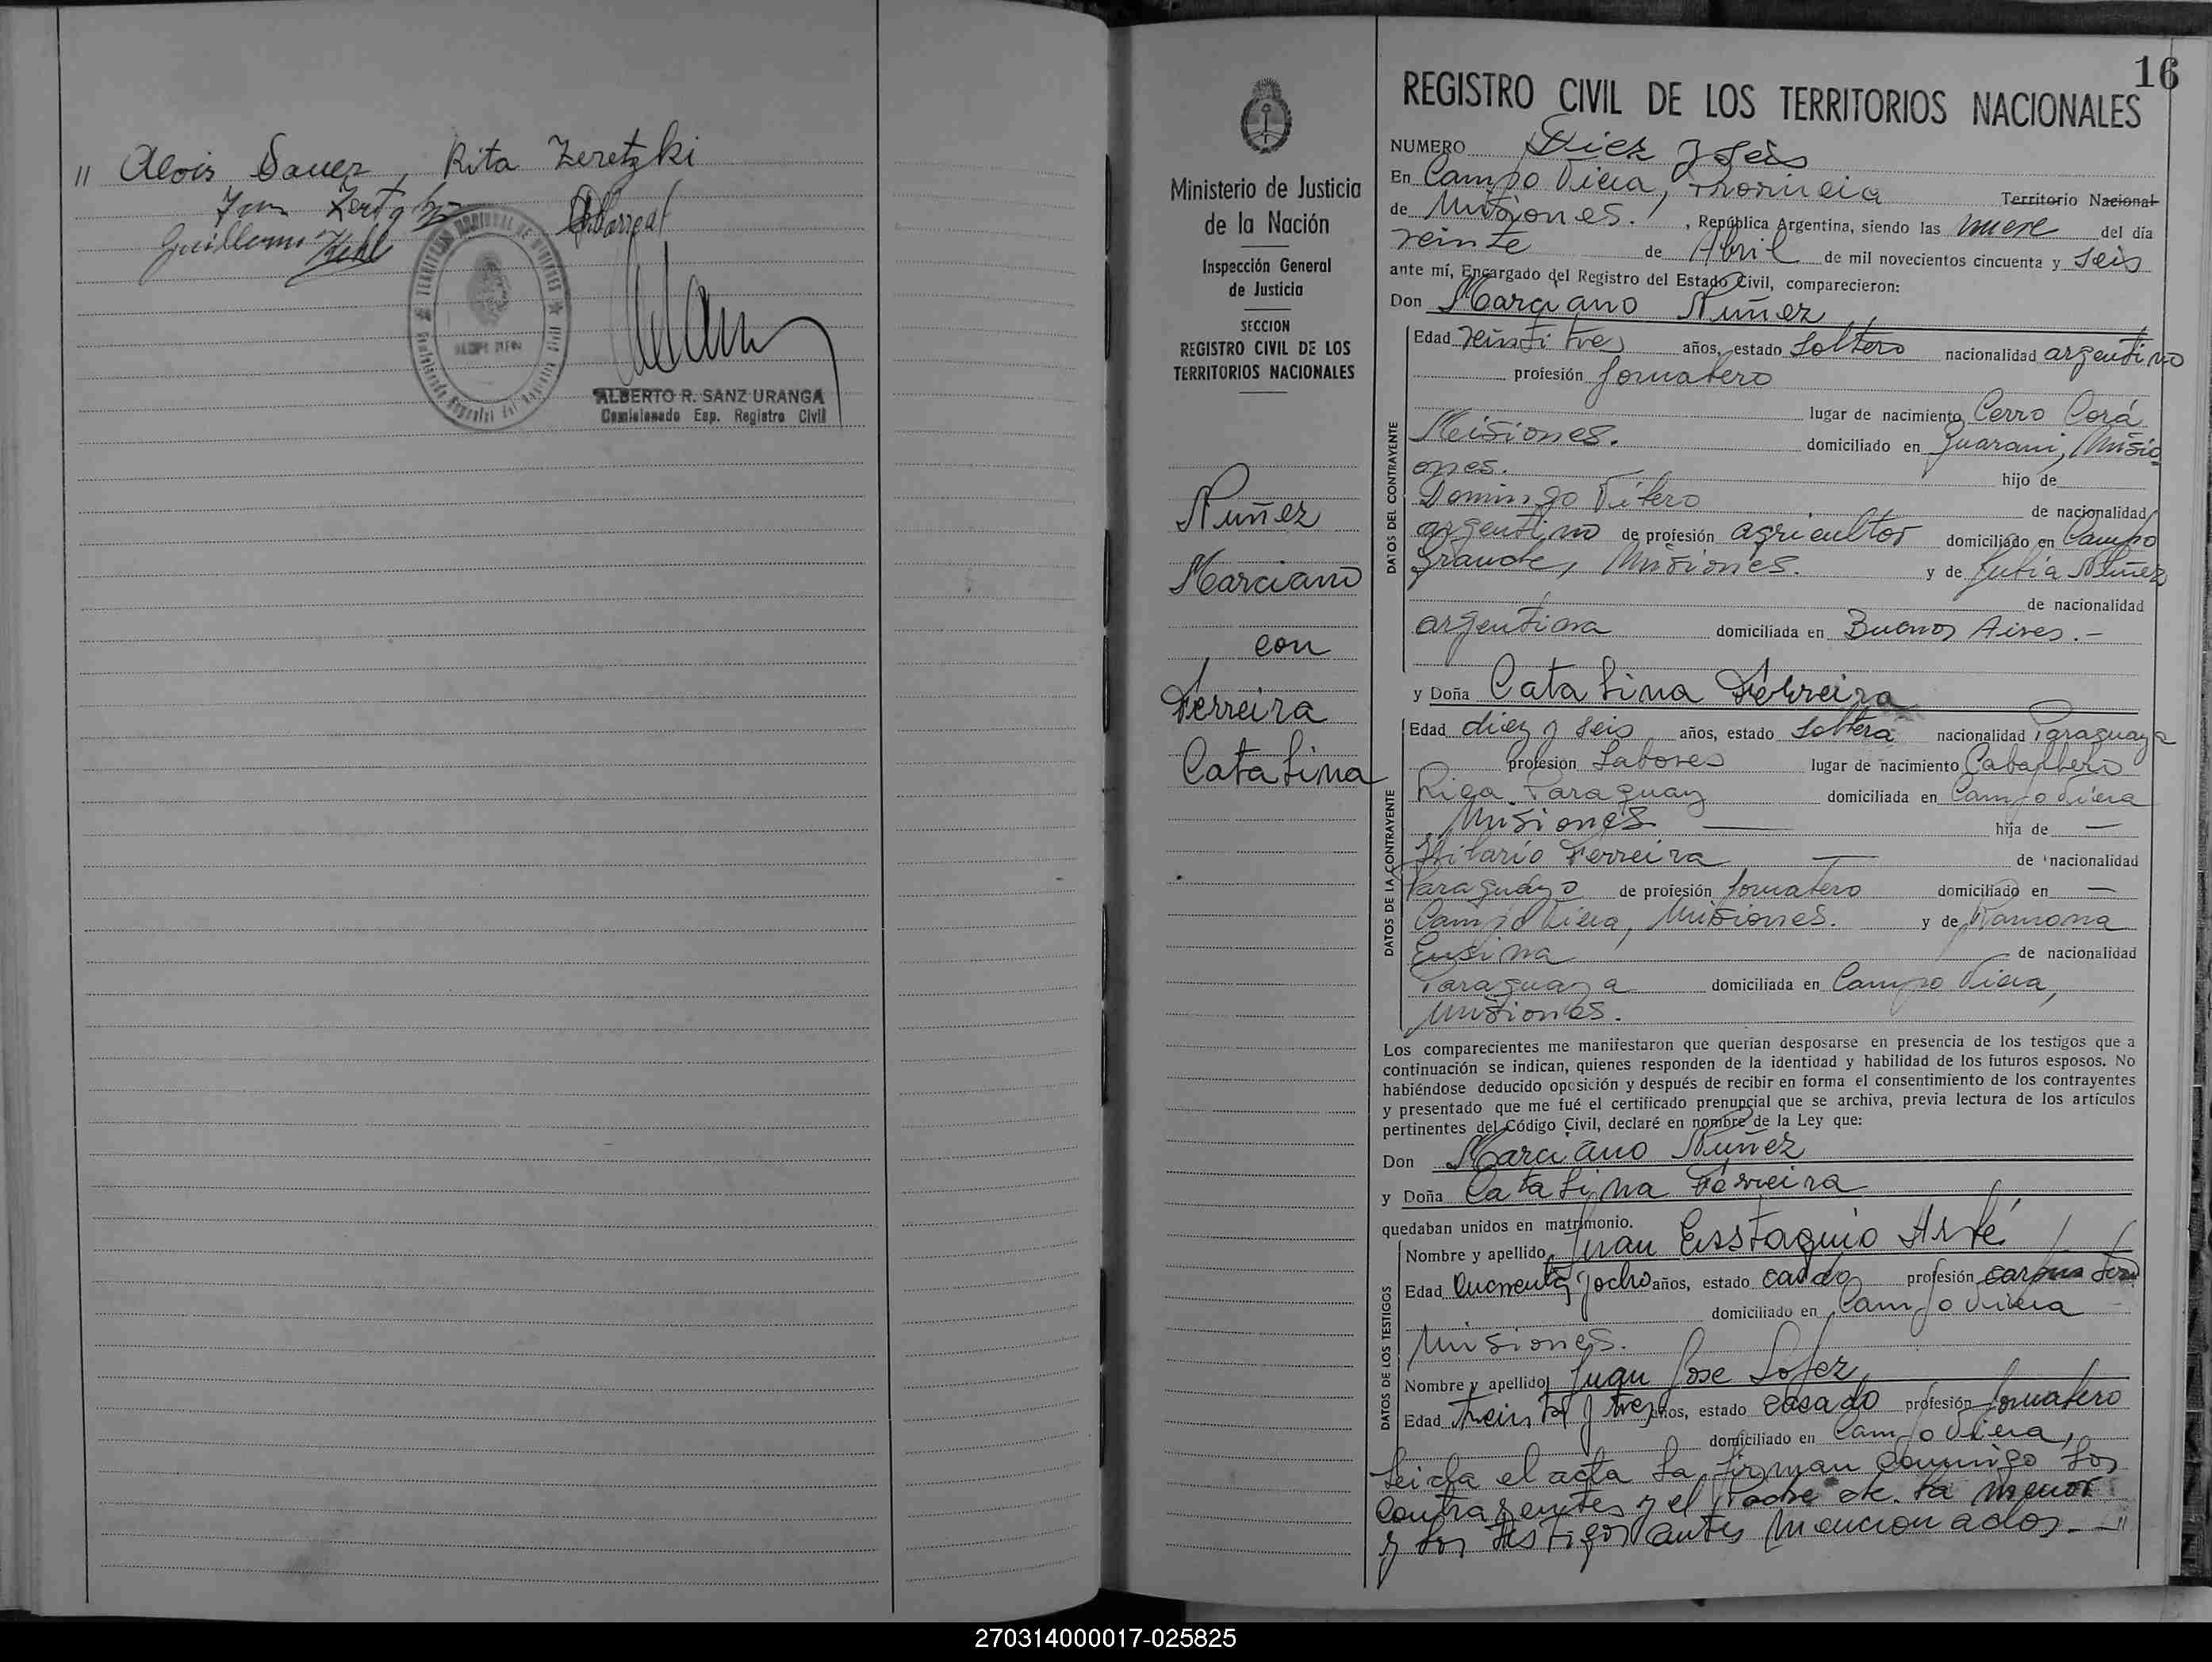 " Alois Sauer, Rita Zeretzki
Guillermo Kehl
ALBERTO R. SANZ URANGA
Comisionado Esp. Registro Civil
16
Ministerio de Justicia
de la Nación
Inspección General
de Justicia
SECCION
REGISTRO CIVIL DE LOS
TERRITORIOS NACIONALES
Nuñez
Marciano
con
Ferreira
Catalina
REGISTRO CIVIL DE LOS TERRITORIOS NACIONALES
NUMERO Diez y Seis
En Campo Viera, Provincia Territorio Nacional
de Misiones. , República Argentina, siendo las nueve del día
veinte de Abril de mil novecientos cincuenta y seis
ante mí, Encargado del Registro del Estado Civil, comparecieron:
Don Marciano Nuñez
DATOS DEL CONTRAYENTE
Edad veintitres años, estado soltero nacionalidad argentino
profesión jornalero
lugar de nacimiento Cerro Corá
Misiones. domiciliado en Guarani, Misio
ones. hijo de
Domingo de nacionalidad
argentino de profesión agricultor domiciliado en Campo
Grande, Misiones. y de Julia Nuñez
de nacionalidad
argentina domiciliada en Buenos Aires.-
y Doña Catalina Ferreira
DATOS DE LA CONTRAYENTE
Edad diez y seis años, estado soltera nacionalidad Paraguaya
profesión Labores lugar de nacimiento Caballero
Paraguay domiciliada en Campo Viera
Misiones — hija de —
Hilario Ferreira — de nacionalidad
Paraguayo de profesión jornalero domiciliado en —
Campo Viera, Misiones. y de Ramona
Ensina de nacionalidad
Paraguaya domiciliada en Campo Viera,
Misiones.
Los comparecientes me manifestaron que querían desposarse en presencia de los testigos que a
continuación se indican, quienes responden de la identidad y habilidad de los futuros esposos. No
habiéndose deducido oposición y después de recibir en forma el consentimiento de los contrayentes
y presentado que me fué el certificado prenupcial que se archiva, previa lectura de los artículos
pertinentes del Código Civil, declaré en nombre de la Ley que:
Don Marciano Nuñez
y Doña Catalina Ferreira
quedaban unidos en matrimonio.
DATOS DE LOS TESTIGOS
Nombre y apellido Juan Eustaquio
Edad cuarenta y ocho años, estado casado profesión carpintero
domiciliado en Campo Viera
Misiones.
Nombre y apellido Juan Jose Lopez
Edad treinta y tres años, estado casado profesión jornalero
domiciliado en Campo Viera,
Leida el acta la firman conmigo los
contrayentes y el Padre de la menor
y los testigos antes mencionados.- "
270314000017-025825